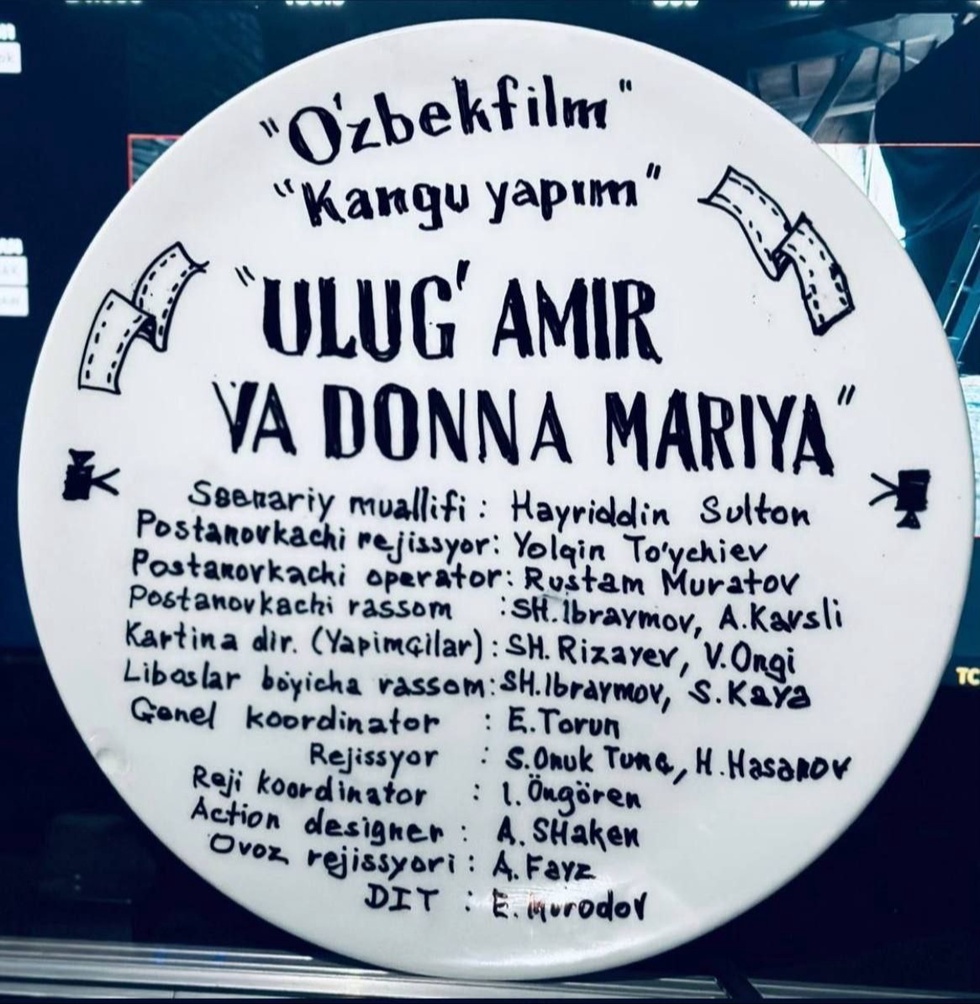 "O'zbekfilm"
"Kangu yapım"
"ULUG' AMIR
VA DONNA MARIYA"
Ssenariy muallifi : Hayriddin Sulton
Postanovkachi rejissyor: Yolqin To'ychiev
Postanovkachi operator: Rustam Muratov
Postanovkachi rassom : SH.Ibraymov, A.Kavsli
Kartina dir. (Yapimçilar) : SH. Rizayev, V.Ongi
Liboslar boyicha rassom: SH.Ibraymov, S.Kaya
Genel koordinator : E.Torun
Rejissyor : S.Onuk Tunç, H.Hasanov
Reji koordinator : I.Öngören
Action designer : A. SHaken
Ovoz rejissyori : A.Fayz
DIT : E.Murodov
TC